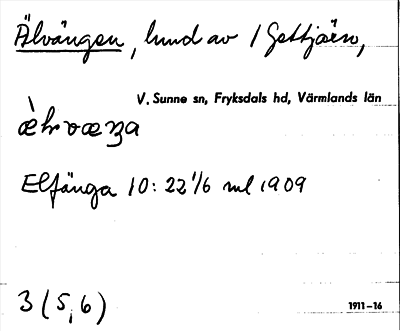 Älvängen, lund av 1 Gettjärn,
V. Sunne sn, Fryksdals hd, Värmlands län
Elfänga 10: 22 1/6 ml 1909
3 (5, 6)
1911–16